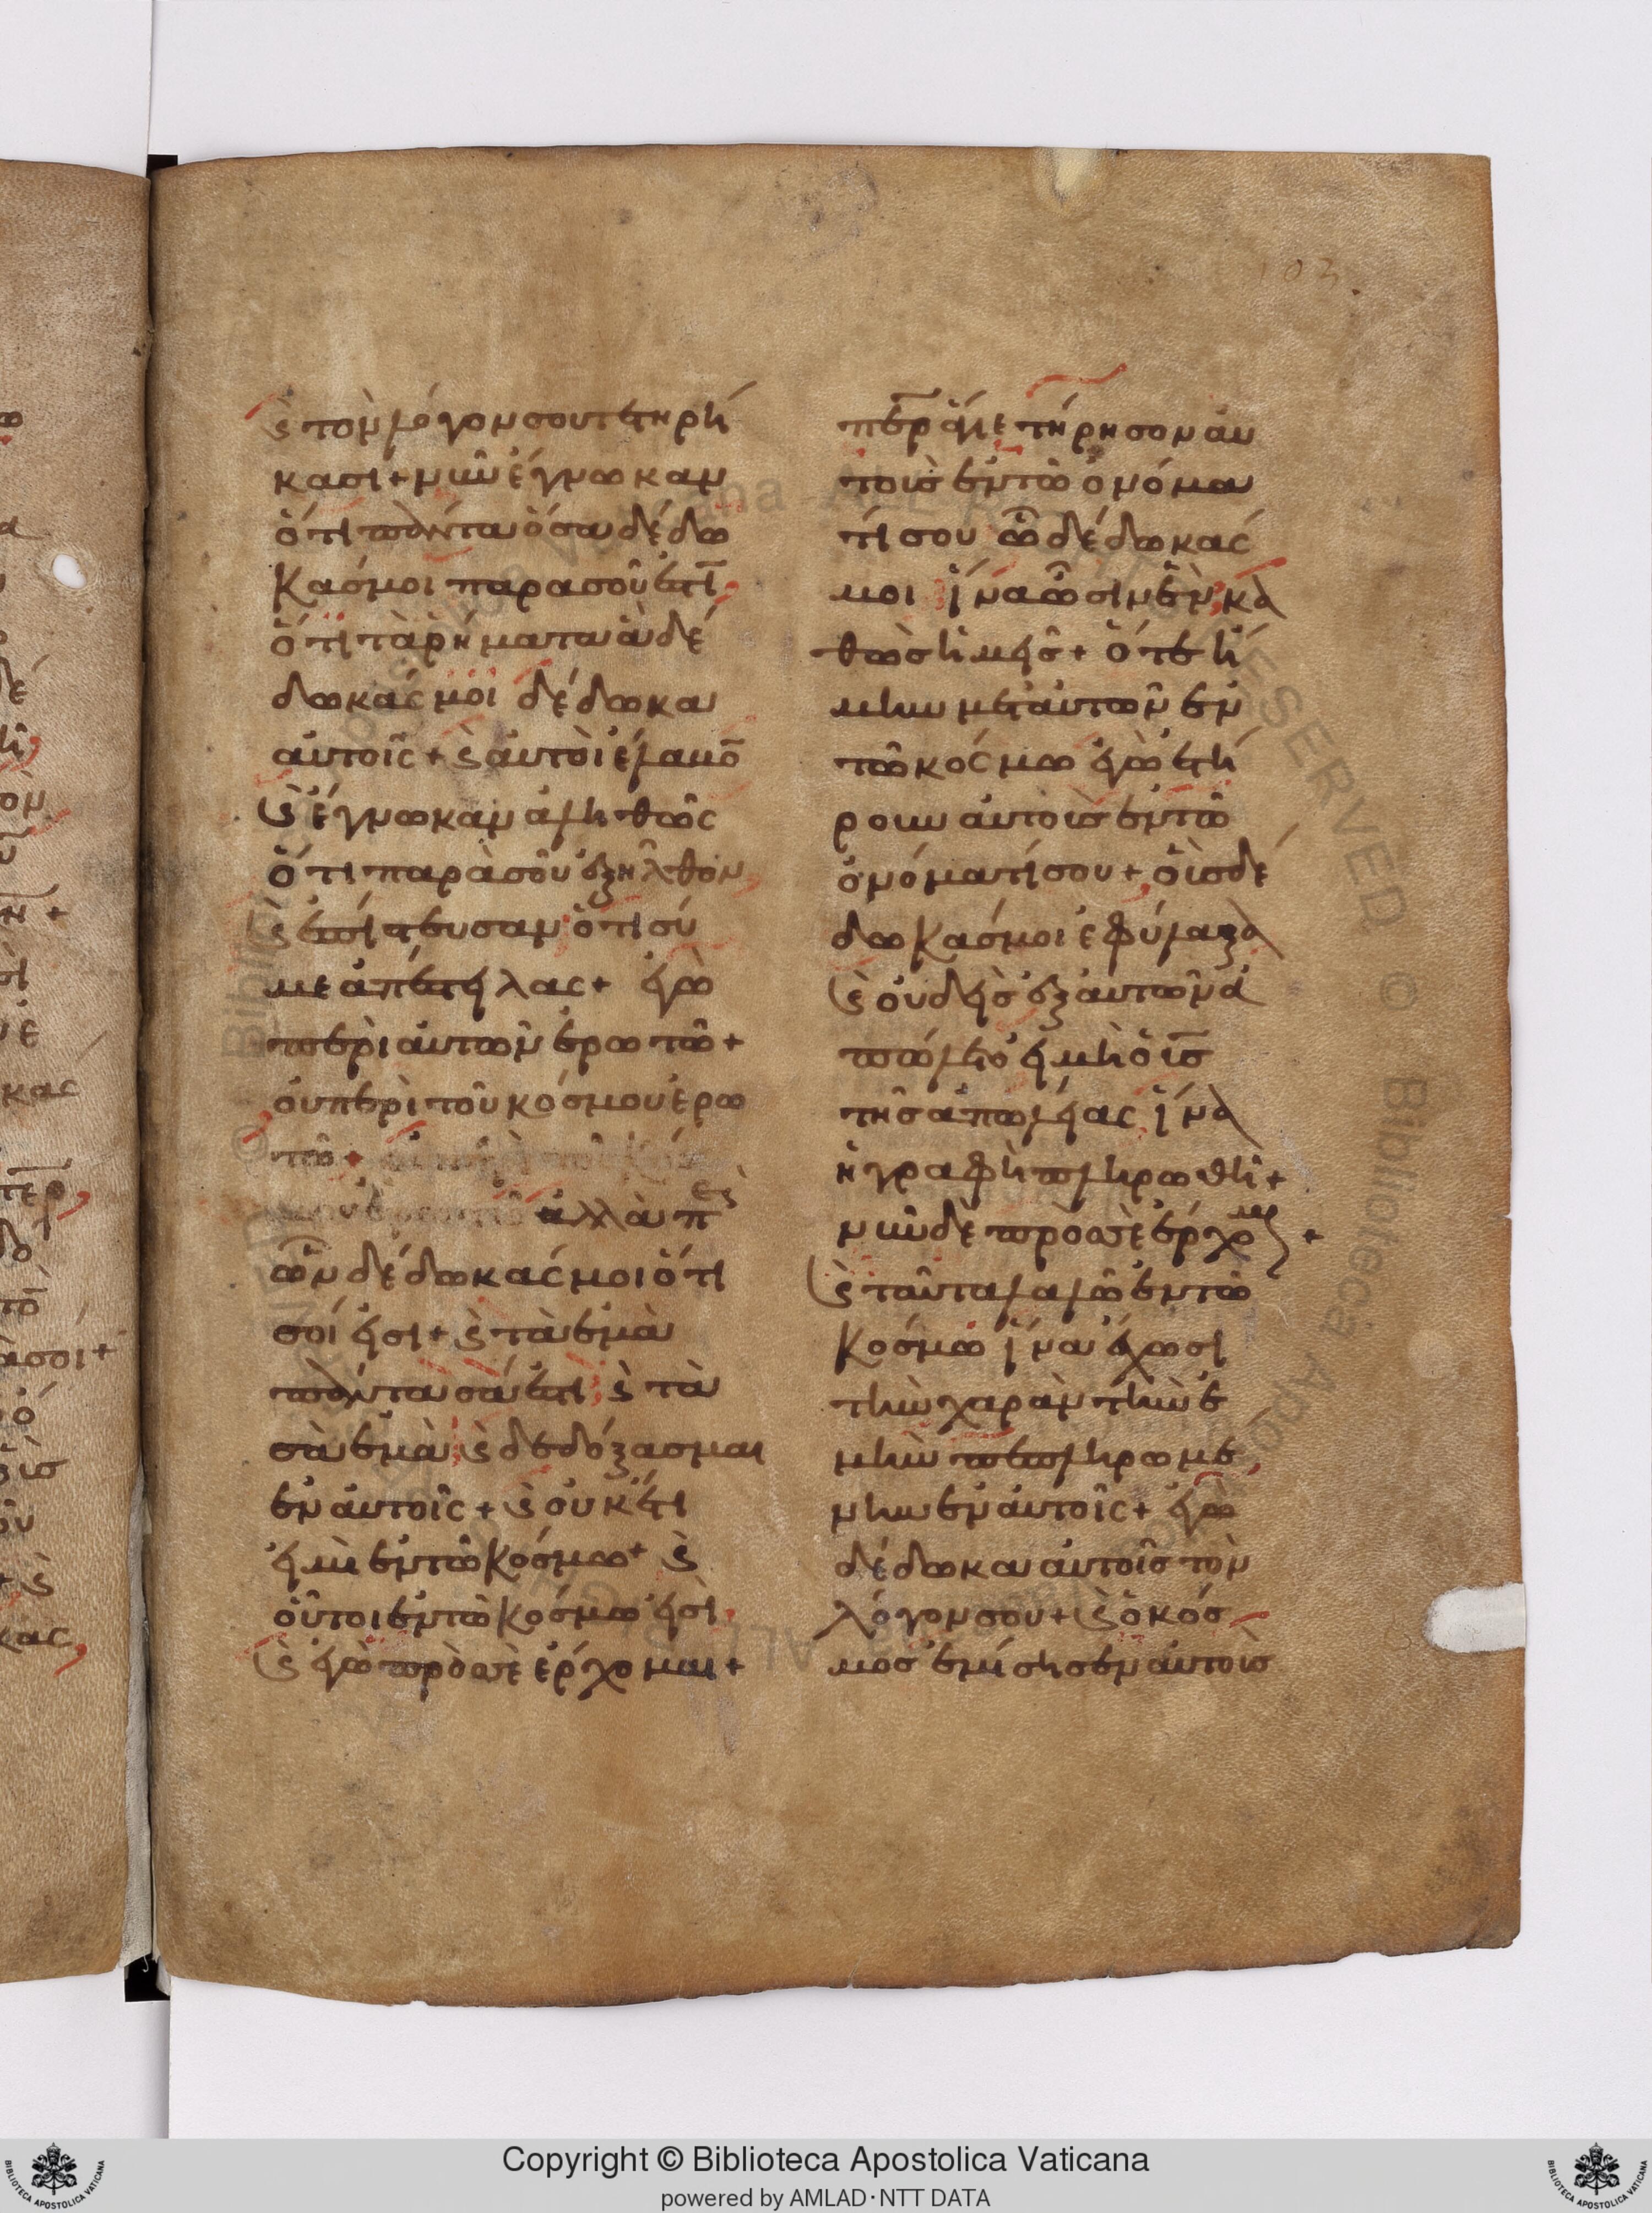 103.
ϛ τὸν λόγον σου τετηρή
κασι + νῦν ἔγνωκαν
ὅτι πάντα ὅσα δέδω
κάσ μοι παρα σοῦ ἐστῑ,
ὅτι τὰ ρήματα ἃ δέ
δωκάς μοι δέδωκα
αὐτοῖς + ϛ αὐτοὶ ἔλαβο̄
ϛ ἔγνωκαν ἀληθῶς
ὅτι παρὰ σοῦ ἐξῆλθον,
ϛ ἐπίστευσαν ὅτι σύ
με ἀπέστειλας + ἐγὼ
περὶ αὐτῶν ἐρωτῶ +
οὐ περὶ τοῦ κόσμου ἐρω
τῶ +
ἀλλὰ π
ὧν δέδωκάς μοι ὅτι
σοί εἰσι + ϛ τὰ ἐμὰ
πάντα σά ἐστι, ϛ τὰ
σὰ ἐμὰ, ϛ δεδόξασμαι
ἐν αὐτοῖς + ϛ οὐκέτι
εἰμὶ ἐν τῶ κόσμω + ϛ
οὗτοι ἐν τῶ κόσμω εἰσὶ,
ϛ ἐγὼ πρὸσ σὲ ἔρχομαι +
πε̄ρ ἅγιε τήρησον αὐ
τοὺσ ἐν τῶ ὀνόμα
τί σου ὧ δέδωκάς
μοι ἵνα ὦσιν ἓν, κα
θὼσ ἡμεῖσ + ὅτε ἤ
μην μετ αὐτῶν ἐν
τῶ κόσμω ἐγὼ ἐτή
ρουν αὐτοὺσ ἐν τῶ
ὀνόματί σου +, οὓσ δέ
δωκάσ μοι ἐφύλαξα
ϛ οὐδεὶσ ἐξ αὐτῶν ἀ
πώλετο εἰ μὴ ὁ υι̅σ
τῆσ ἀπωλείας, ἵνα
ἡ γραφὴ πληρωθῆ +
νῦν δὲ πρὸσ σὲ ἔρχομ +
ϛ ταῦτα λαλῶ ἐν τῶ
κόσμω ἵνα ἔχωσι
τὴν χαρὰν τὴν ἐ
μὴν πεπληρωμέ,
νην ἐν αὐτοῖς + ἐγὼ
δέδωκα αὐτοῖσ τὸν
λόγον σου + ϛ ὁ κόσ
μοσ ἐμίσησεν αὐτοὺσ
Copyright © Biblioteca Apostolica Vaticana
powered by AMLAD·NTT DATA